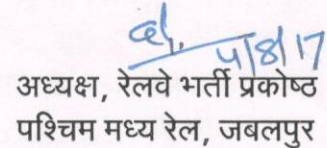 4/8/17
अध्यक्ष, रेलवे भर्ती प्रकोष्ठ
पश्चिम मध्य रेल, जबलपुर